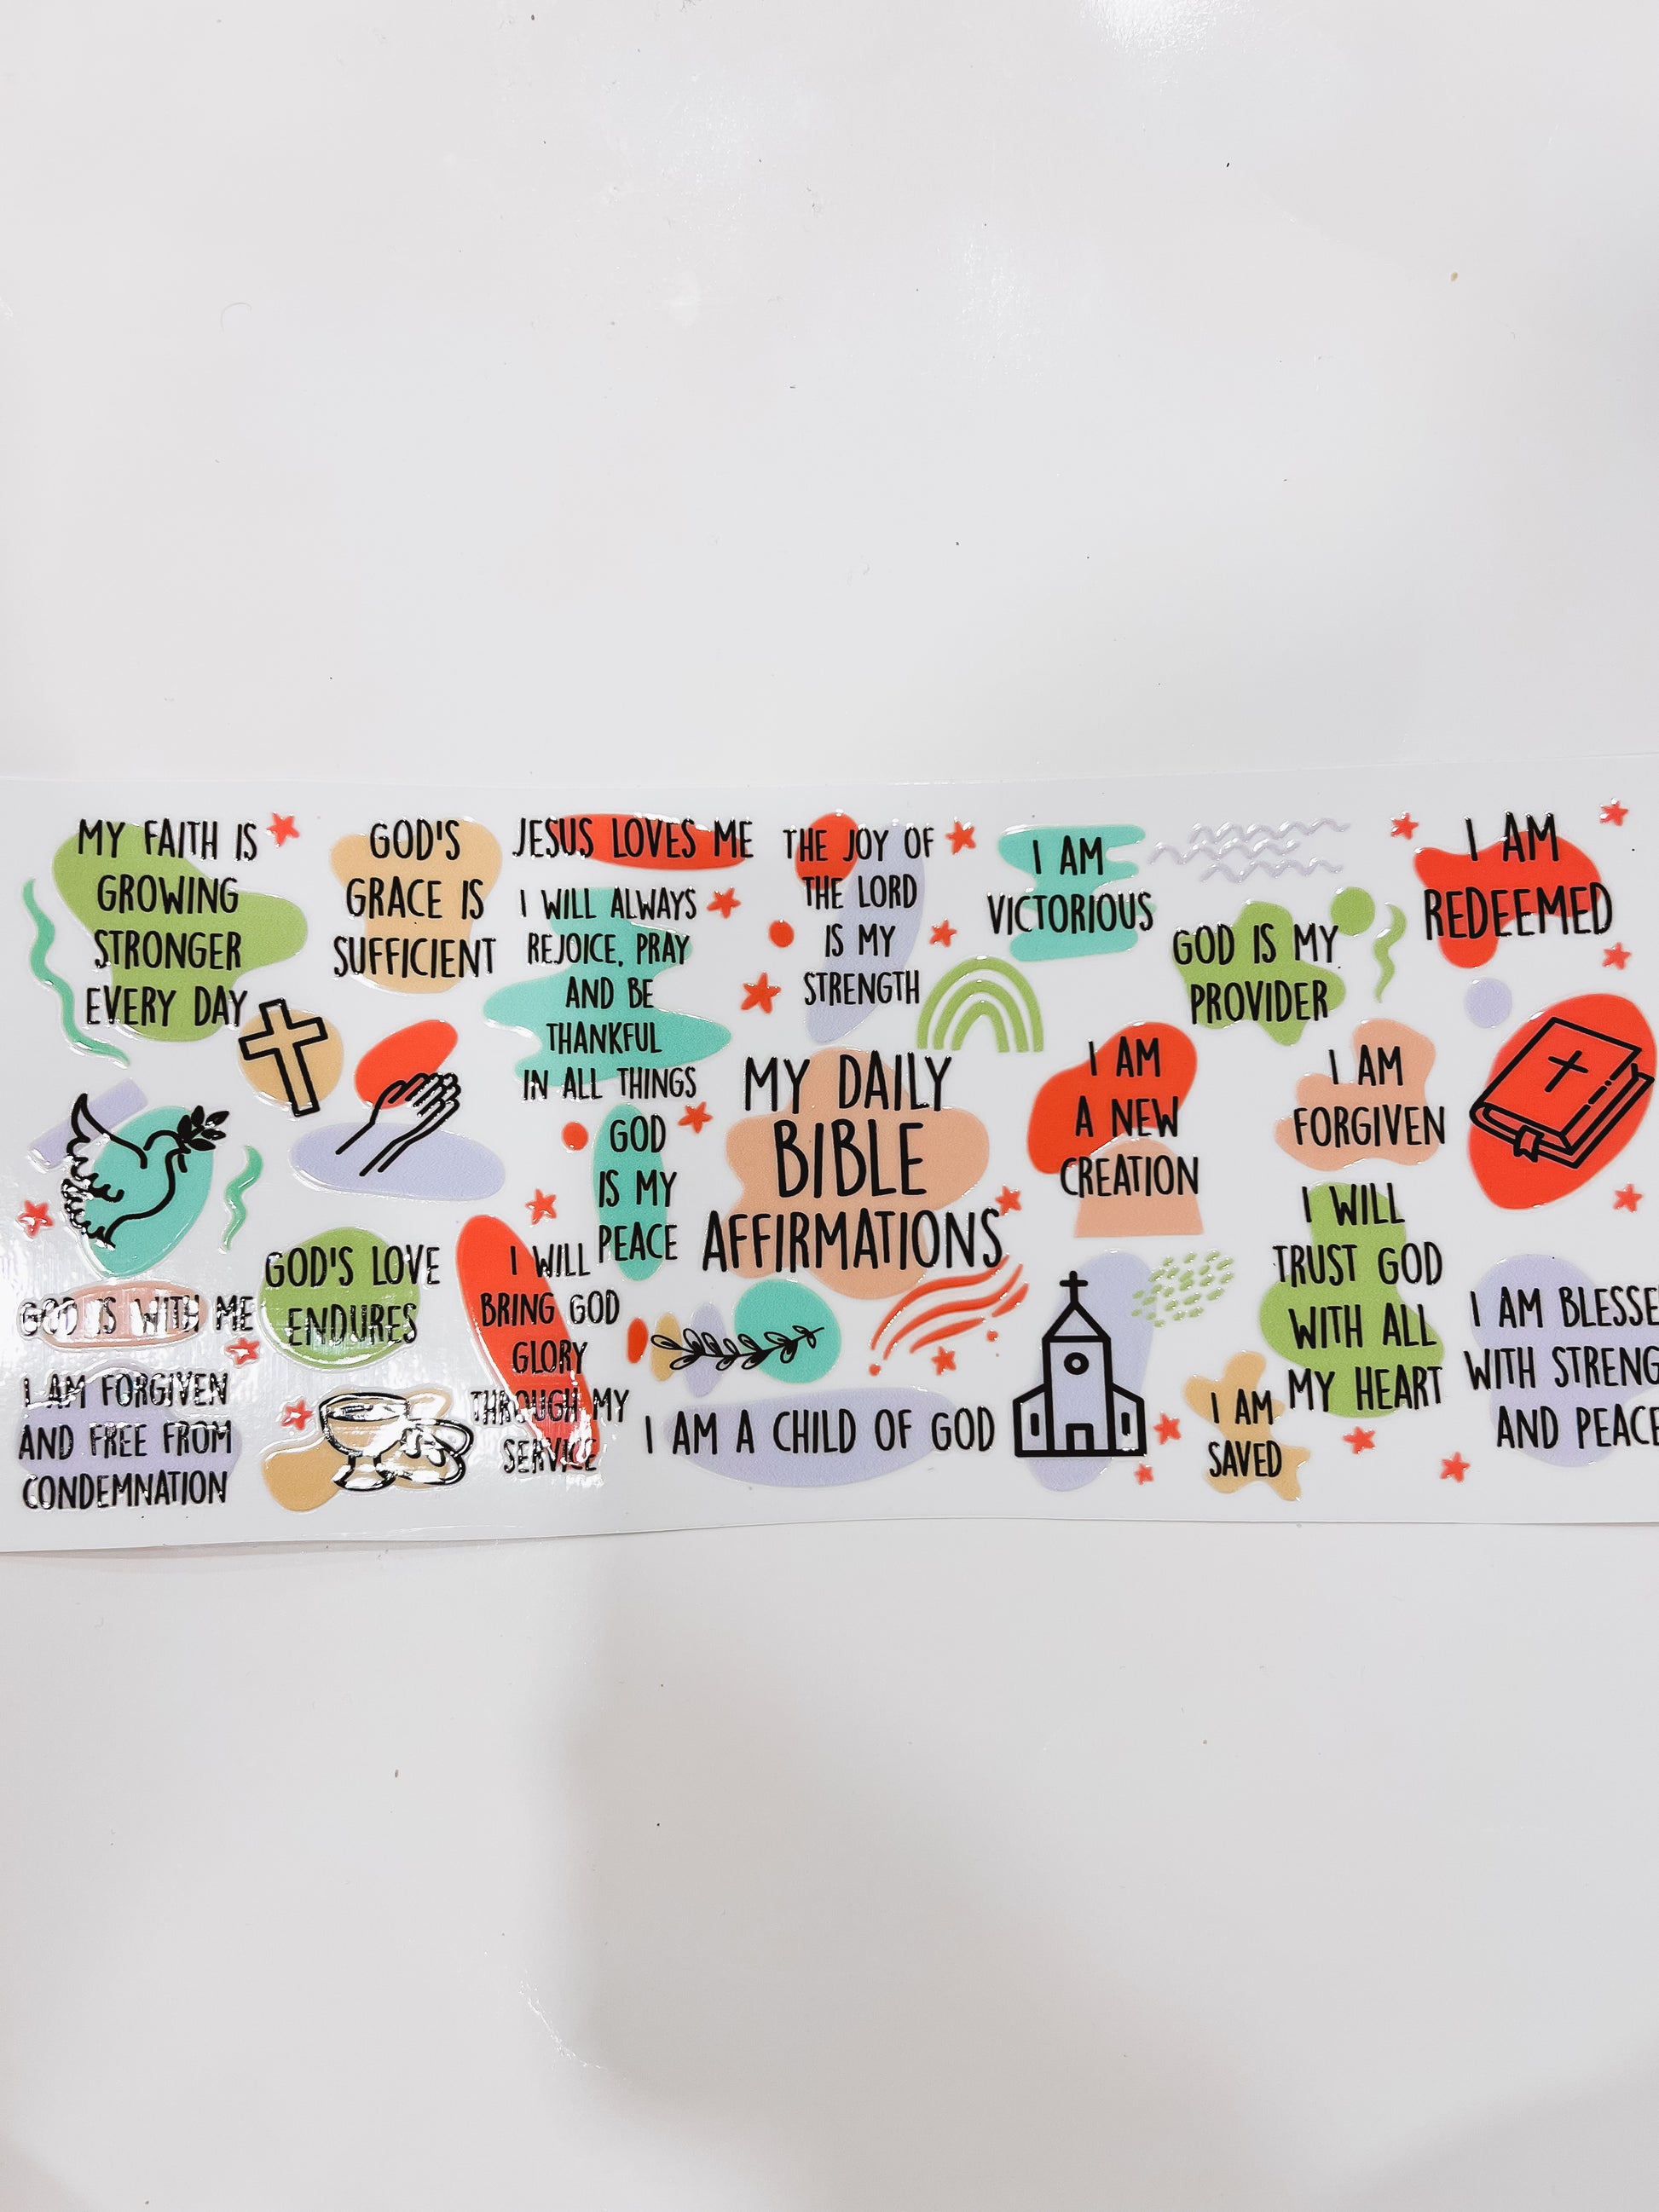 MY FAITH IS
GROWING
STRONGER
EVERY DAY
GOD'S
GRACE IS
SUFFICIENT
JESUS LOVES ME
I WILL ALWAYS
REJOICE, PRAY
AND BE
THANKFUL
IN ALL THINGS
THE JOY OF
THE LORD
IS MY
STRENGTH
I AM
VICTORIOUS
GOD IS MY
PROVIDER
I AM
REDEEMED
GOD
IS MY
PEACE
MY DAILY
BIBLE
AFFIRMATIONS
I AM
A NEW
CREATION
I AM
FORGIVEN
GOD IS WITH ME
GOD'S LOVE
ENDURES
I WILL
BRING GOD
GLORY
THROUGH MY
SERVICE
I WILL
TRUST GOD
WITH ALL
MY HEART
I AM BLESSE
WITH STRENG
AND PEACE
I AM FORGIVEN
AND FREE FROM
CONDEMNATION
I AM A CHILD OF GOD
I AM
SAVED